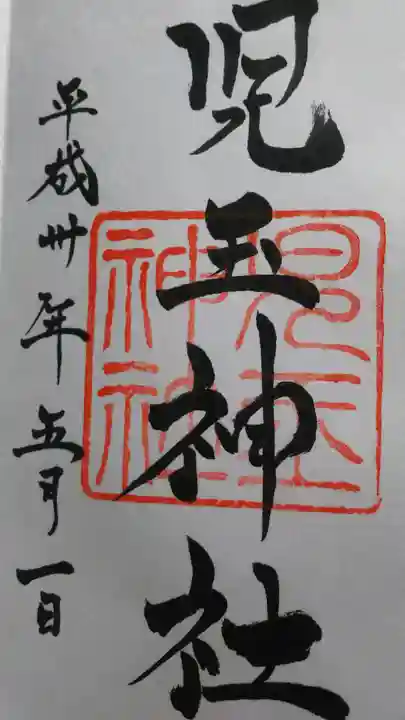 児玉神社
平成卅年五月一日
児玉神社